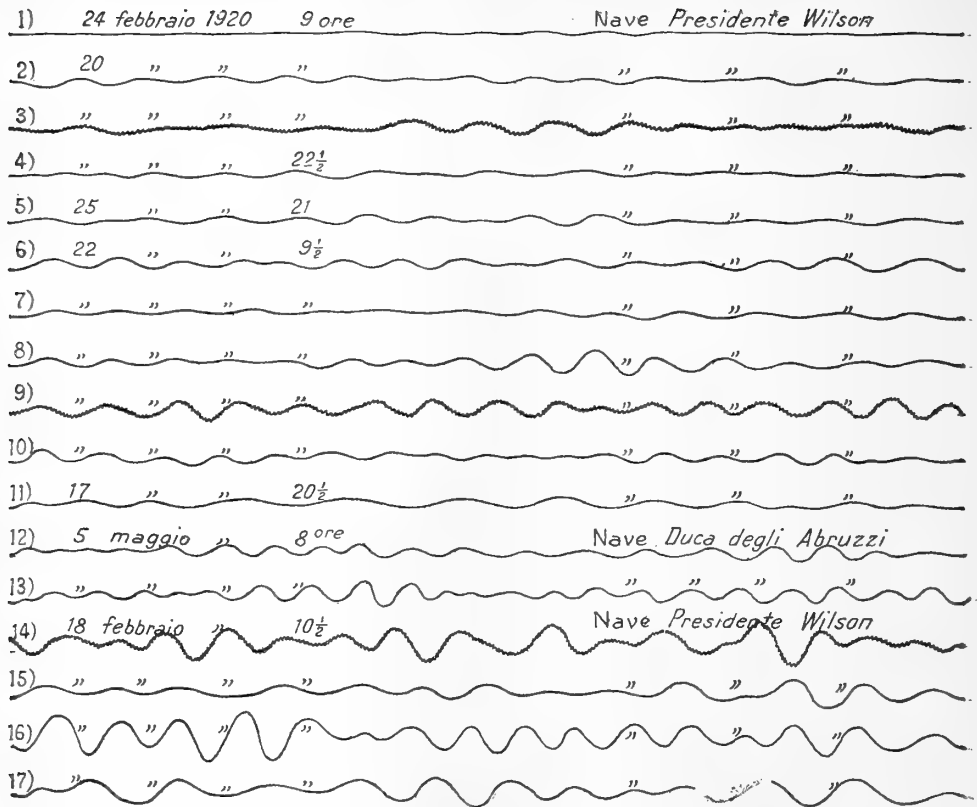 1) 24 febbraio 1920 9 ore Nave Presidente Wilson
2) 20 " " " " " "
3) " " " " " " "
4) " " " 22½ " " "
5) 25 " " 21 " " "
6) 22 " " 9½ " " "
7) " " " " " " "
8) " " " " " " "
9) " " " " " " "
10) " " " " " " "
11) 17 " " 20½ " " "
12) 5 maggio " 8 ore Nave Duca degli Abruzzi
13) " " " " " " " "
14) 18 febbraio " 10½ Nave Presidente Wilson
15) " " " " " " "
16) " " " " " " "
17) " " " " " "